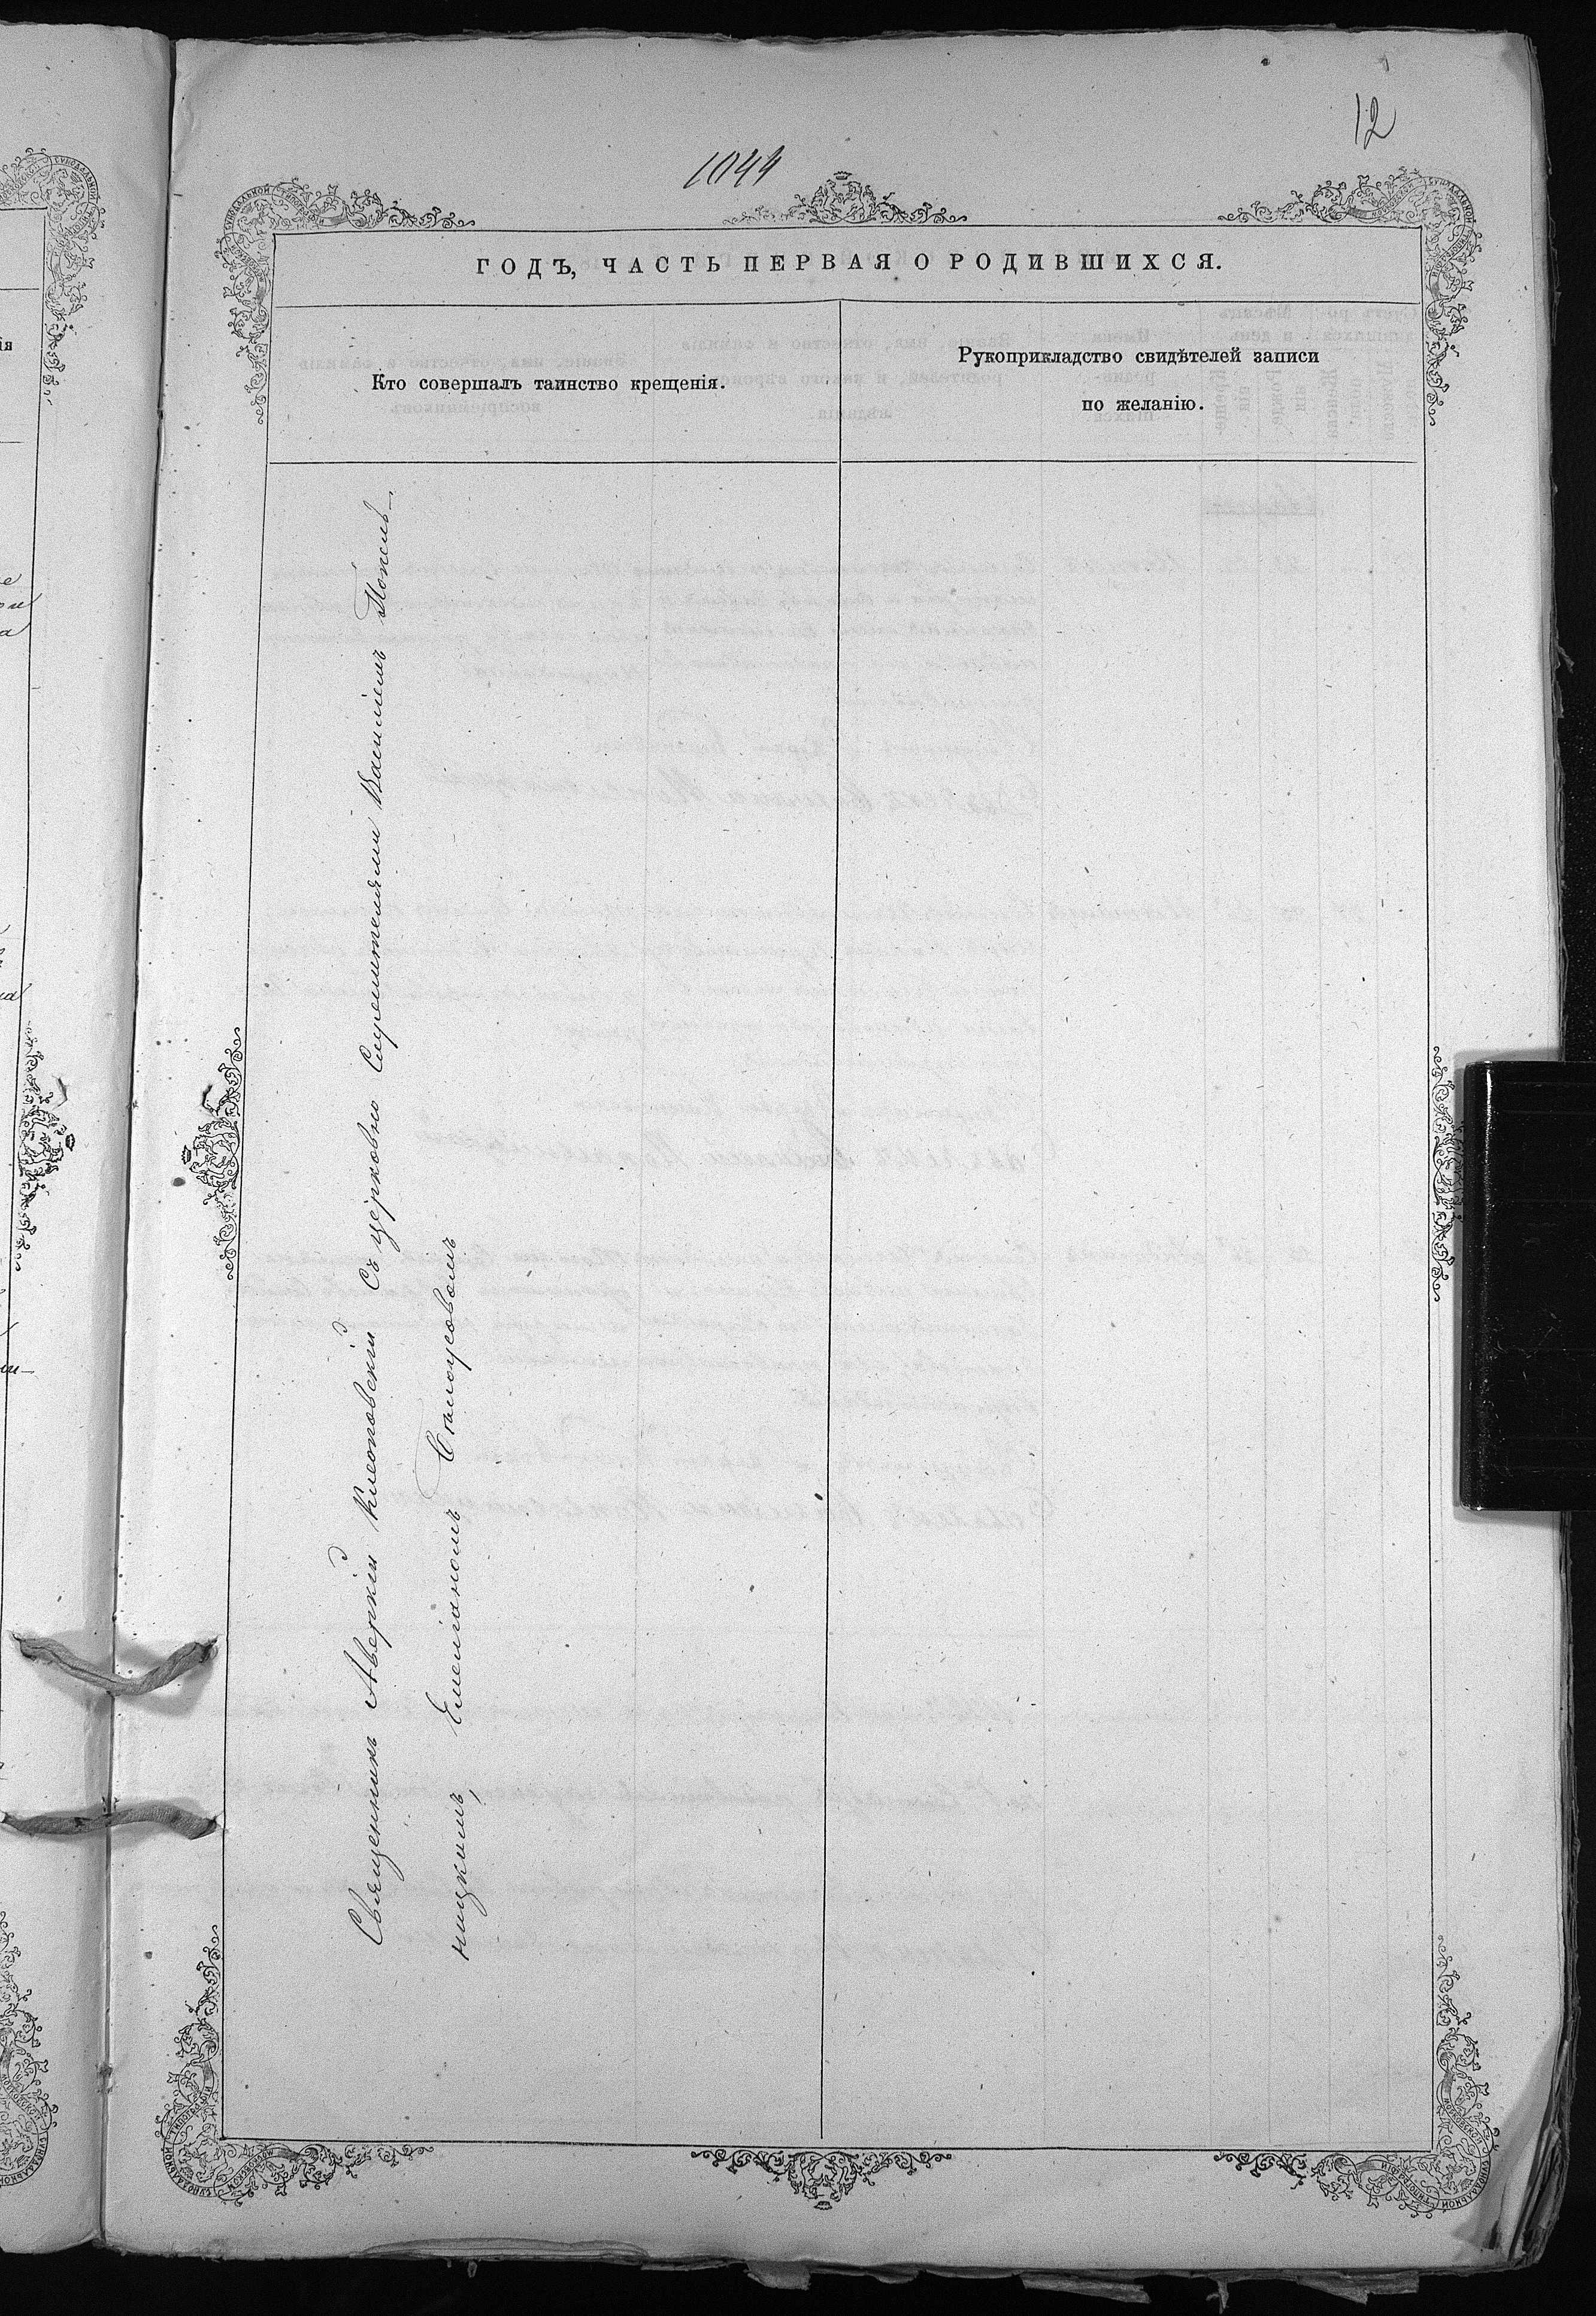 12
1044
ГОДЪ, ЧАСТЬ ПЕРВАЯ О РОДИВШИХСЯ.
Кто совершалъ таинство крещенія.
Рукоприкладство свидѣтелей записи
по желанію.
Священникъ Аверкій Клеоповскій Съ церковно Служителями Василіемъ Копель-
ницкимъ, Емеліаномъ